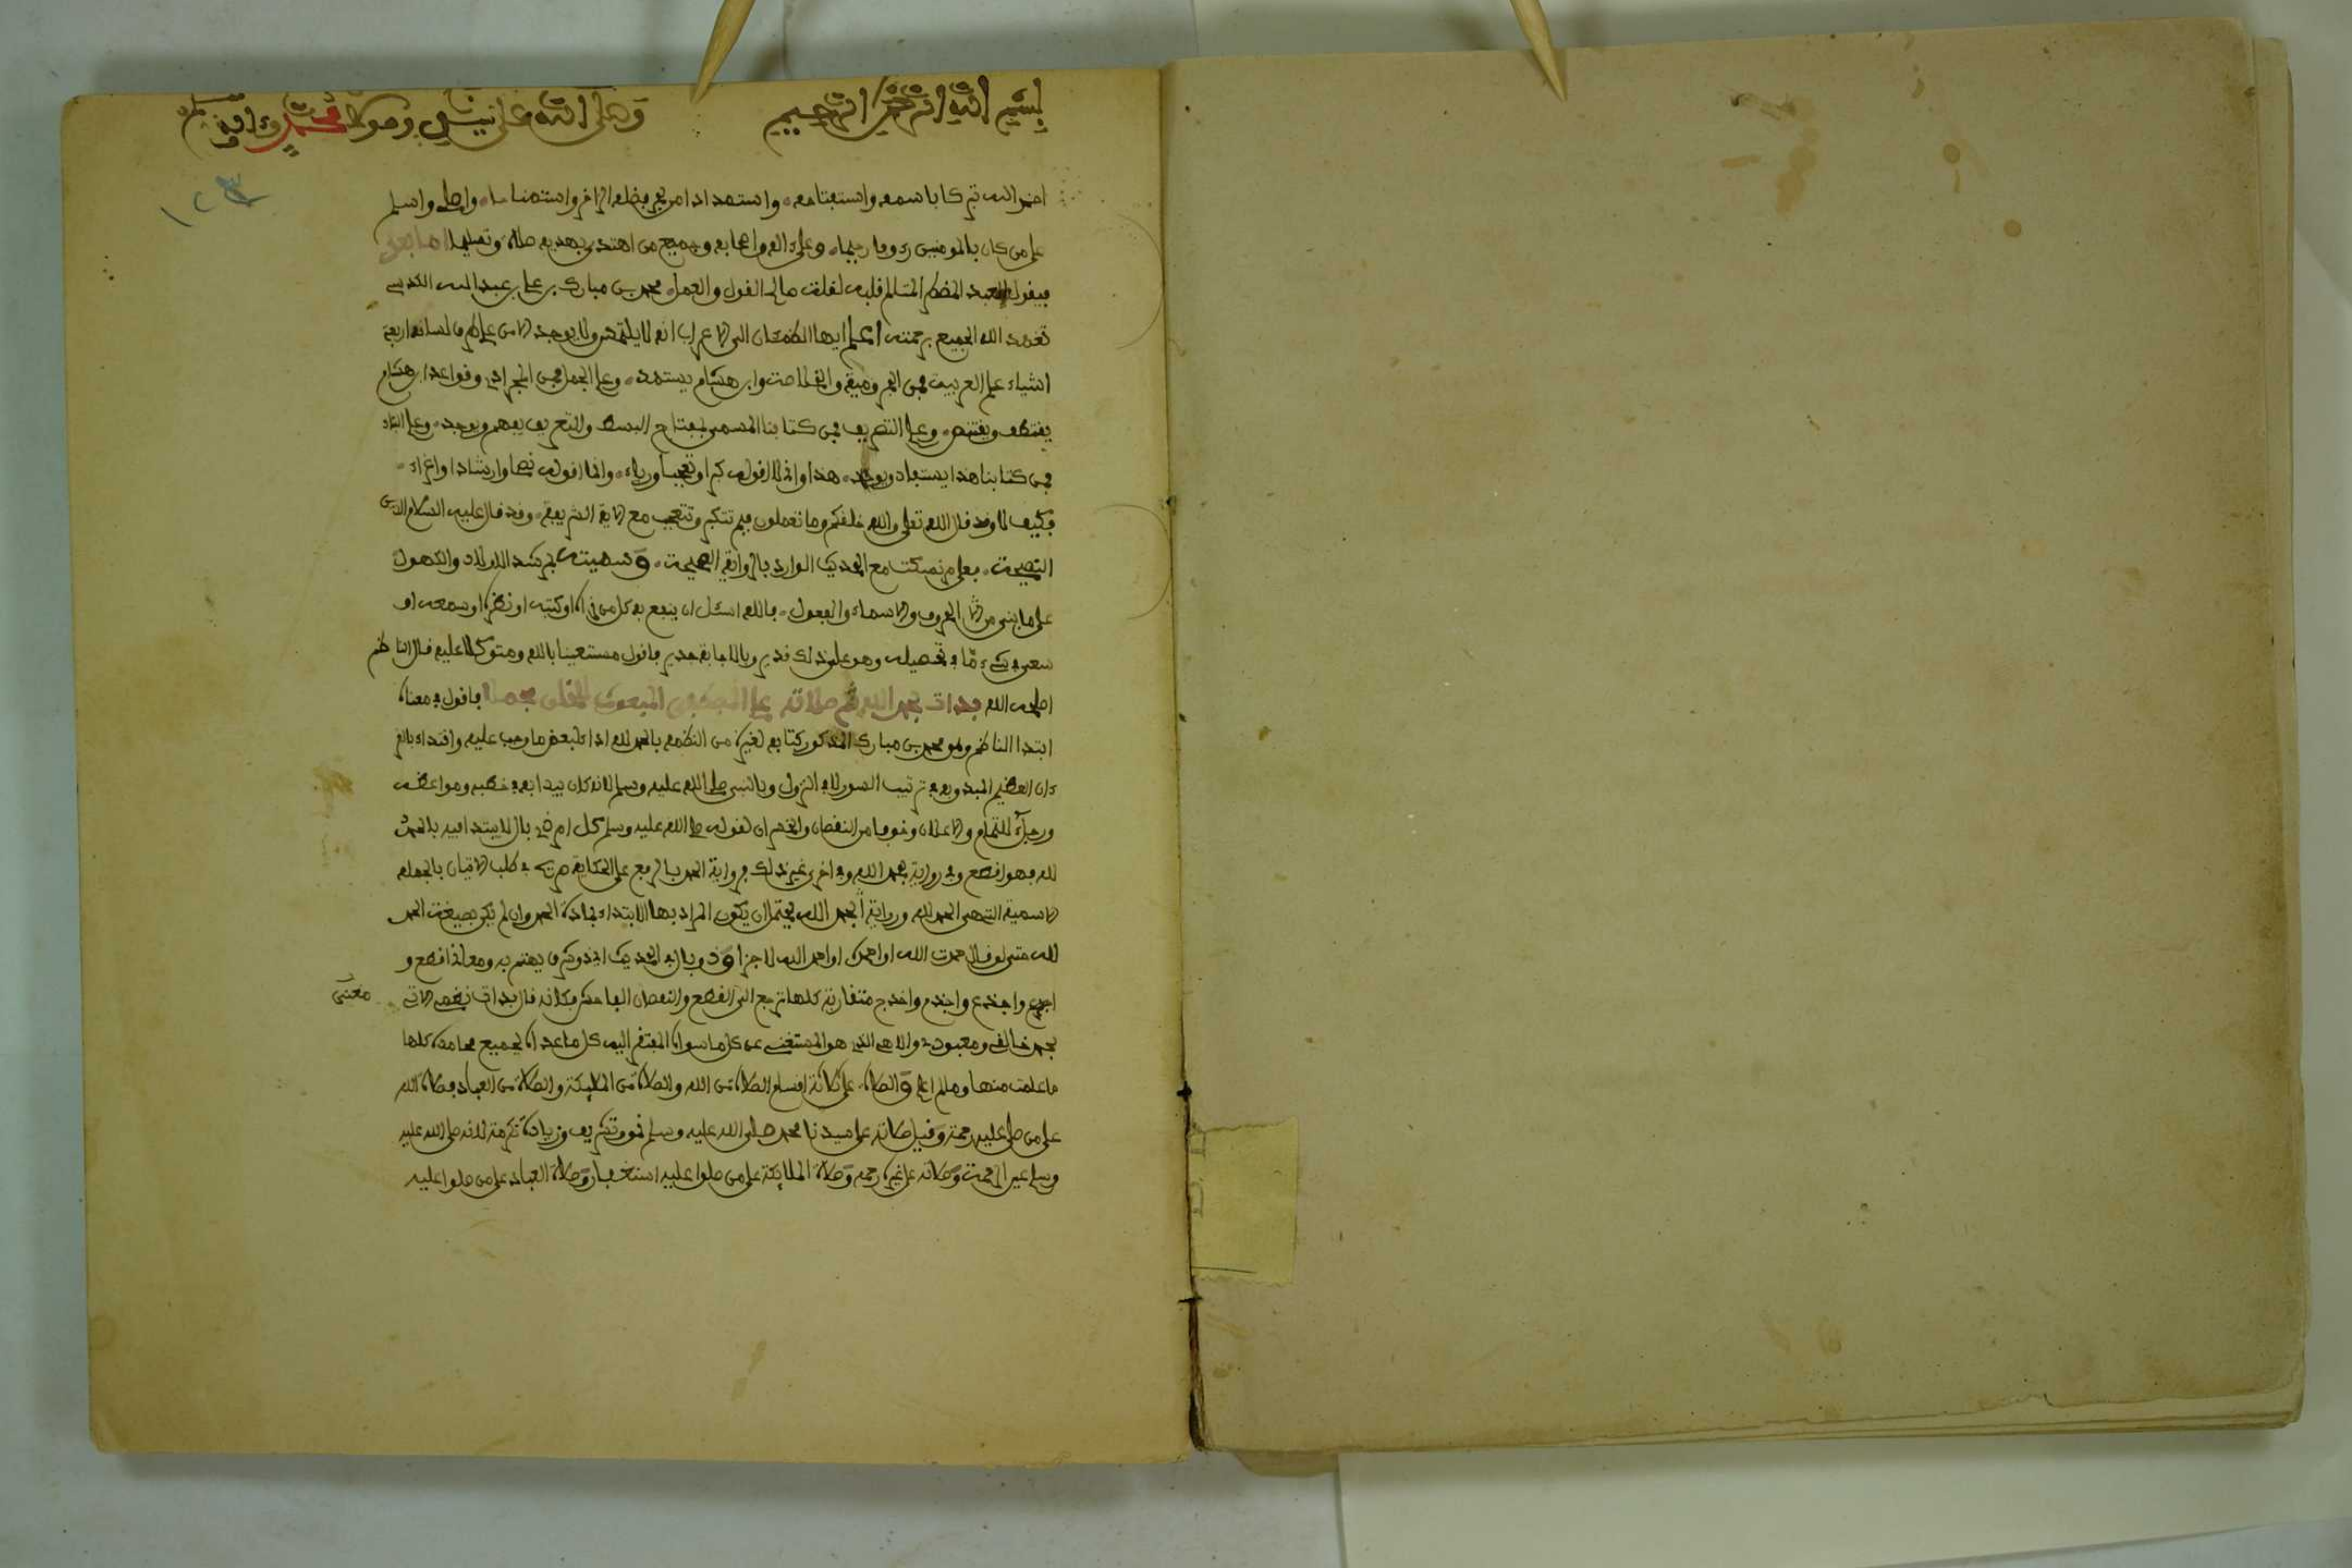 بسم الله الرحمن الرحيم وصلى الله على نبينا ومولانا محمد وءاله وسلم
احمد الله تبركا باسمه واستفتاحه واستمدادا من بحر فضله الزاخر واصلى واسلم
على من كان بالمومنين رءوفا رحيما وعلى ءاله واصحابه وجميع من اهتدى بهديه صلاة وتسليما اما بعد
فيقول العبد المضطر قلبه لغلبة حاله القول والعمل محمد بن مبارك بن على بن عبد الله
تغمد الله الجميع برحمته اعلم ايها الطمحان الى الاعراب انه لا يلتمس ولا يوجد الا من علم اربعة
اشياء علم العربية فمن الجرومية والخلاصة وابن هشام يستمد وعلم الجمل فمن المجرادى وقواعد ابن هشام
يقتطف ويقتنص وعلم التصريف فمن كتابنا المسمى بمفتاح البسط والتعريف يفهم ويوجد وعلم
فمن كتابنا هذا يستفاد ويوجد هذا وانى لا اقوله كبرا وتعجبا ورياء وانما اقوله نصحا وارشادا واغراء
فكيف لا وقد قال الله تعلى والله خلقكم وما تعملون فبم تتكبر وتتعجب مع الاية الشريفة وقد قال عليه السلام الدين
النصيحة فعلام نمسكت مع الحديث الوارد بالرواية الصحيحة وسميته بمرشد الاولاد والكهول
على ما بنى من الحروف والاسماء والفعول فالله اسئل ان ينفع به كل من قراه او كتبه او نظره او سمعه او
سعى فى شىء ما فى تحصيله وهو على ذلك قدير وبالاجابة جدير فاقول مستعينا بالله ومتوكلا عليه قال الناظم
اصلحه الله بدات بحمد الله ثم صلاته على المصطفى المبعوث للخلق مجملا فاقول فى معناه
ابتدا الناظم وهو محمد بن مبارك المذكور كتابه لغيره من النظمه بالحمد لله اداء لبعض ما وجب عليه واقتداء بالقر
ءان العظيم المبدو به فى ترتيب السور لا فى النزول وبالنبى صلى الله عليه وسلم لانه كان يبدا به فى خطبه ومواعظه
ورجاء للتمام والاعلان وخوفا من النقصان والخسران لقوله صلى الله عليه وسلم كل امر ذى بال لا يبتدا فيه بالحمد
لله فهو اقطع وفى رواية بحمد الله وفى اخرى غير ذلك فرواية الحمد بالرفع على الحكاية صريحة فى طلب الاتيان بالجملة
الاسمية التى هى الحمد لله ورواية الحمد الله يحتمل ان يكون المراد بها الابتداء بمادة الحمد وان لم يكن بصيغة الحمد
لله حتى لو قال حمدت الله او احمد الله لاجزا وذو بال فى الحديث اى ذو شرف يهتم به ومعنى اقطع و
ابتر واجذع واجذم واخدج متقاربة كلها ترجع الى القطع والنقصان الفاحش فكانه قال بدات نظمى الاتى معنى
بحمد خالقى ومعبودى والاهى الذى هو المستغنى عن كل ما سواه المفتقر اليه كل ما عداه بجميع محامده كلها
ما علمت منها وما لم اعلم والصلاة على ثلاثة اقسام الصلاة من الله والصلاة من الملائكة والصلاة من العباد فصلاة الله
على من صلى عليه رحمة وقيل صلاته على سيدنا محمد صلى الله عليه وسلم تشريف وزيادة تكرمة لانه صلى الله عليه
وسلم عين الرحمة وصلاته على غيره رحمة وصلاة الملائكة على من صلوا عليه استغفار وصلاة العباد على من صلوا عليه